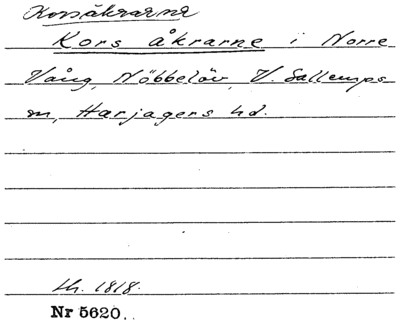 Korsåkrarne
Kors åkrarne i Norre
Vång, Nöbbelöv, V. Sallerups
sn, Harjagers hd.
Lh. 1818.
Nr 5620.